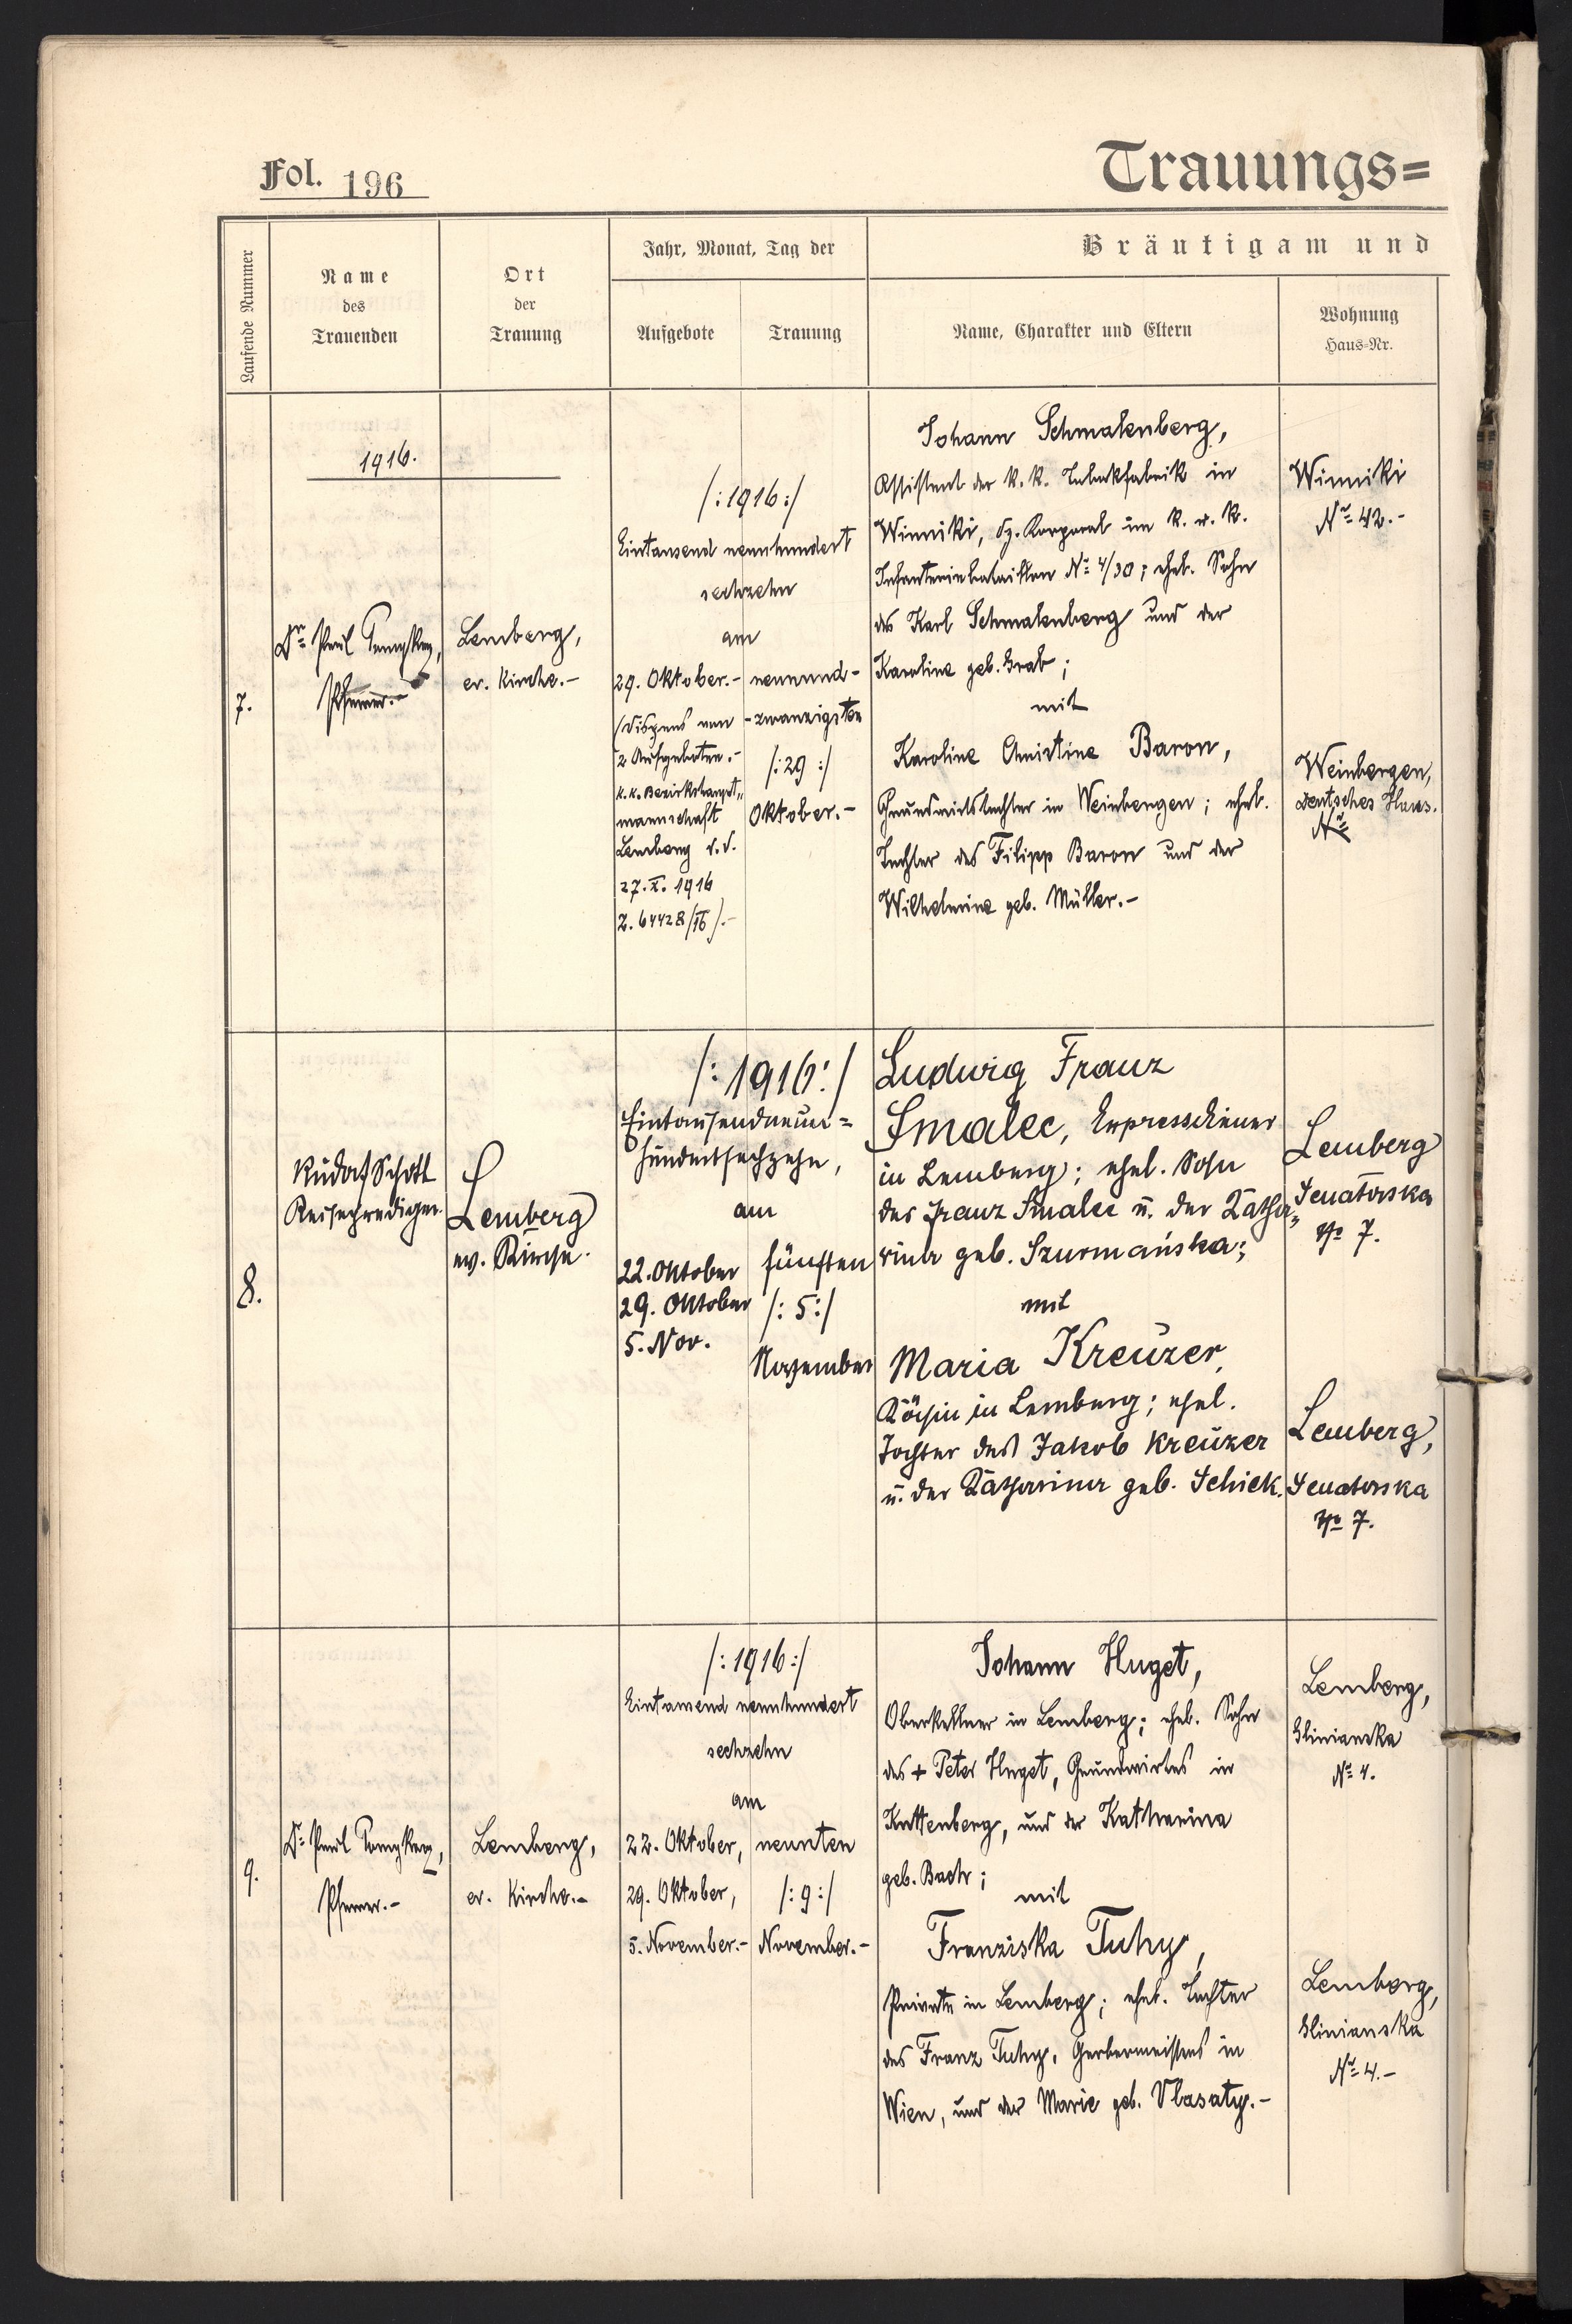 Fol. 196
Trauungs=
Laufende Nummer
Name
des
Trauenden
Ort
der
Trauung
Jahr, Monat, Tag der
Aufgebote
Trauung
Bräutigam und
Name, Charakter und Eltern
Wohnung
Haus-Nr.
1916.
7.
Dr. Paul
Pfarrer.-
Lemberg,
ev. Kirche.-
/:1916:/
Eintausend neunhundert
sechzehn
am
29. Oktober.-
/Dispens von
2 Aufgeboten.-
k.k. Bezirkshaupt„
mannschaft
Lemberg v.d.
27.X. 1916
Z. 64428/16/.-
neunund-
-zwanzigsten
/:29:/
Oktober.-
Johann Schmalenberg,
Assistent der k.k. Tabakfabrik in
Winniki, dz. Korporal im k.u.k.
Infanteriebataillon No 4/30; ehel. Sohn
des Karl Schmalenberg und der
Karoline geb. Grab;
mit
Karoline Christine Baron,
Grundwirtstochter in Weinbergen; ehel.
Tochter des Filipp Baron und der
Wilhelmine geb. Müller.-
Winniki
No 42.-
Weinbergen,
Deutsches Haus.
No
8.
Rudolf Schott
Reiseprediger.
Lemberg
ev. Kirche.
/:1916:/
Eintausendneun=
hundertsechzehn,
am
22. Oktober
29. Oktober
5. Nov.
fünften
/:5:/
November
Ludwig Franz
Smalec, Expressdiener
in Lemberg; ehel. Sohn
des Franz Smalec u. der Katha„
rina geb. Szurmańska;
mit
Maria Kreuzer,
Köchin in Lemberg; ehel.
Tochter des Jakob Kreuzer
u. der Katharina geb. Schick.
Lemberg
Senatorska
No 7.
Lemberg,
Senatorska
No 7.
9.
Dr. Paul
Pfarrer.-
Lemberg,
ev. Kirche.-
/:1916:/
Eintausend neunhundert
sechzehn
am
22. Oktober,
29. Oktober,
5. November.-
neunten
/:9:/
November.-
Johann Huget,
Oberkellner in Lemberg; ehel. Sohn
des + Peter Huget, Grundwirtes in
Kuttenberg, und der Katharina
geb. Bach;
mit
Franziska Tuhy,
Private in Lemberg; ehel. Tochter
des Franz Tuhy, Gerbermeisters in
Wien, und der Marie geb. Vlasaty.-
Lemberg,
Glinianska
No 4.
Lemberg,
Glinianska
No 4.-